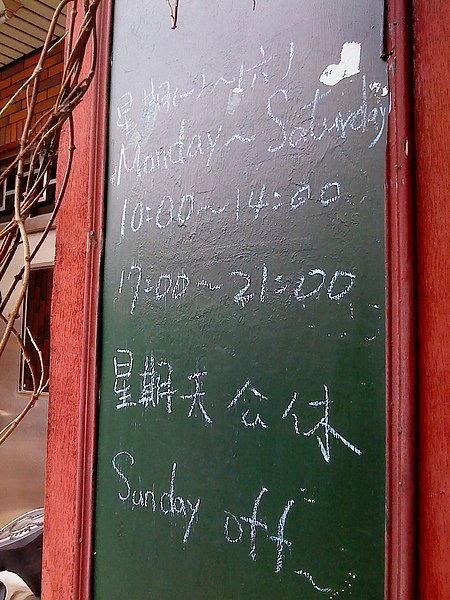 星期一~六
Monday~Saturday
10:00~14:00
17:00~21:00
星期天公休
Sunday off~